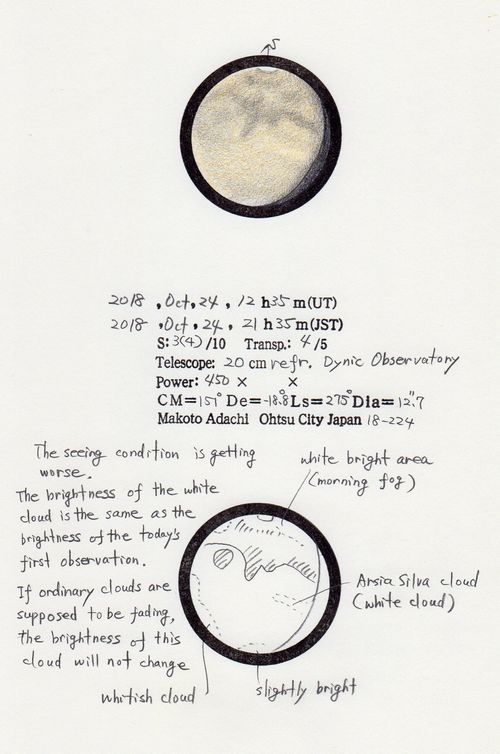 N
2018 , Oct, 24 , 12 h 35 m (UT)
2018 , Oct, 24 , 21 h 35 m (JST)
S: 3(4) /10 Transp.: 4 /5
Telescope: 20 cm refr. Dynic Observatory
Power: 450 × ×
CM= 157° De= -18.°8 Ls= 275° Dia= 12."7
Makoto Adachi Ohtsu City Japan 18-224
The seeing condition is getting
worse.
The brightness of the white
cloud is the same as the
brightness of the today's
first observation.
If ordinary clouds are
supposed to be fading,
the brightness of this
cloud will not change
white bright area
(morning fog)
Arsia Silva cloud
(white cloud)
whitish cloud
slightly bright